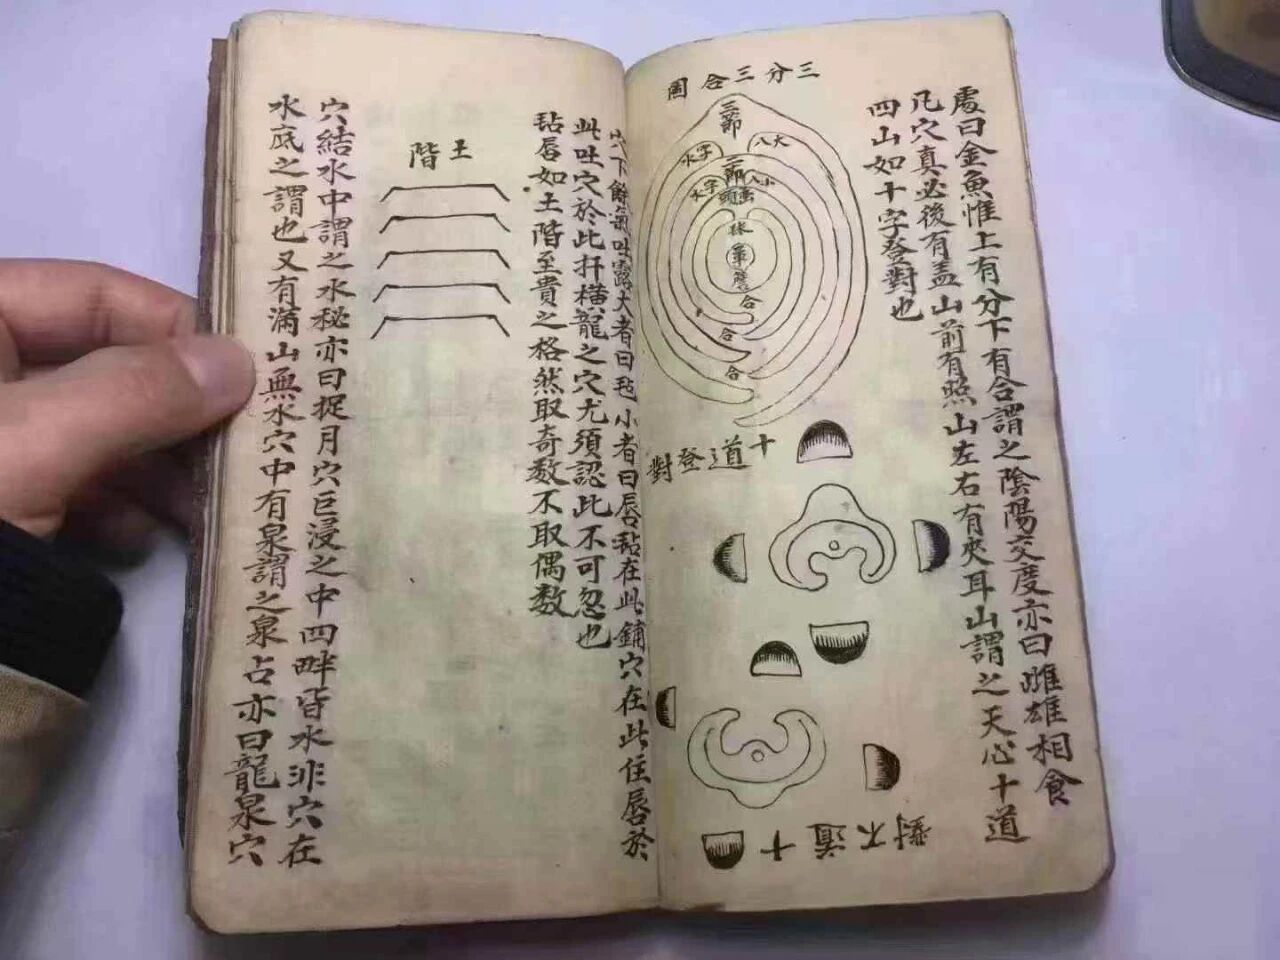 處曰金魚惟上有分下有合謂之陰陽交度亦曰雌雄相食
凡穴真必後有盖山前有照山左右有夾耳山謂之天心十道
四山如十字登對也
三分三合圖
三節
八大
水字
二節
八小
水字
毬
簷
合
合
合
十道登對
十道不對
穴下餘氣吐露大者曰毡小者曰唇毡在此鋪穴在此住唇於
此吐穴於此扦橫龍之穴尤須認此不可忽也
毡唇如土階至貴之格然取奇数不取偶数
土階
穴結水中謂之水秘亦曰捉月穴巨浸之中四畔皆水非穴在
水底之謂也又有滿山無水穴中有泉謂之泉占亦曰龍泉穴